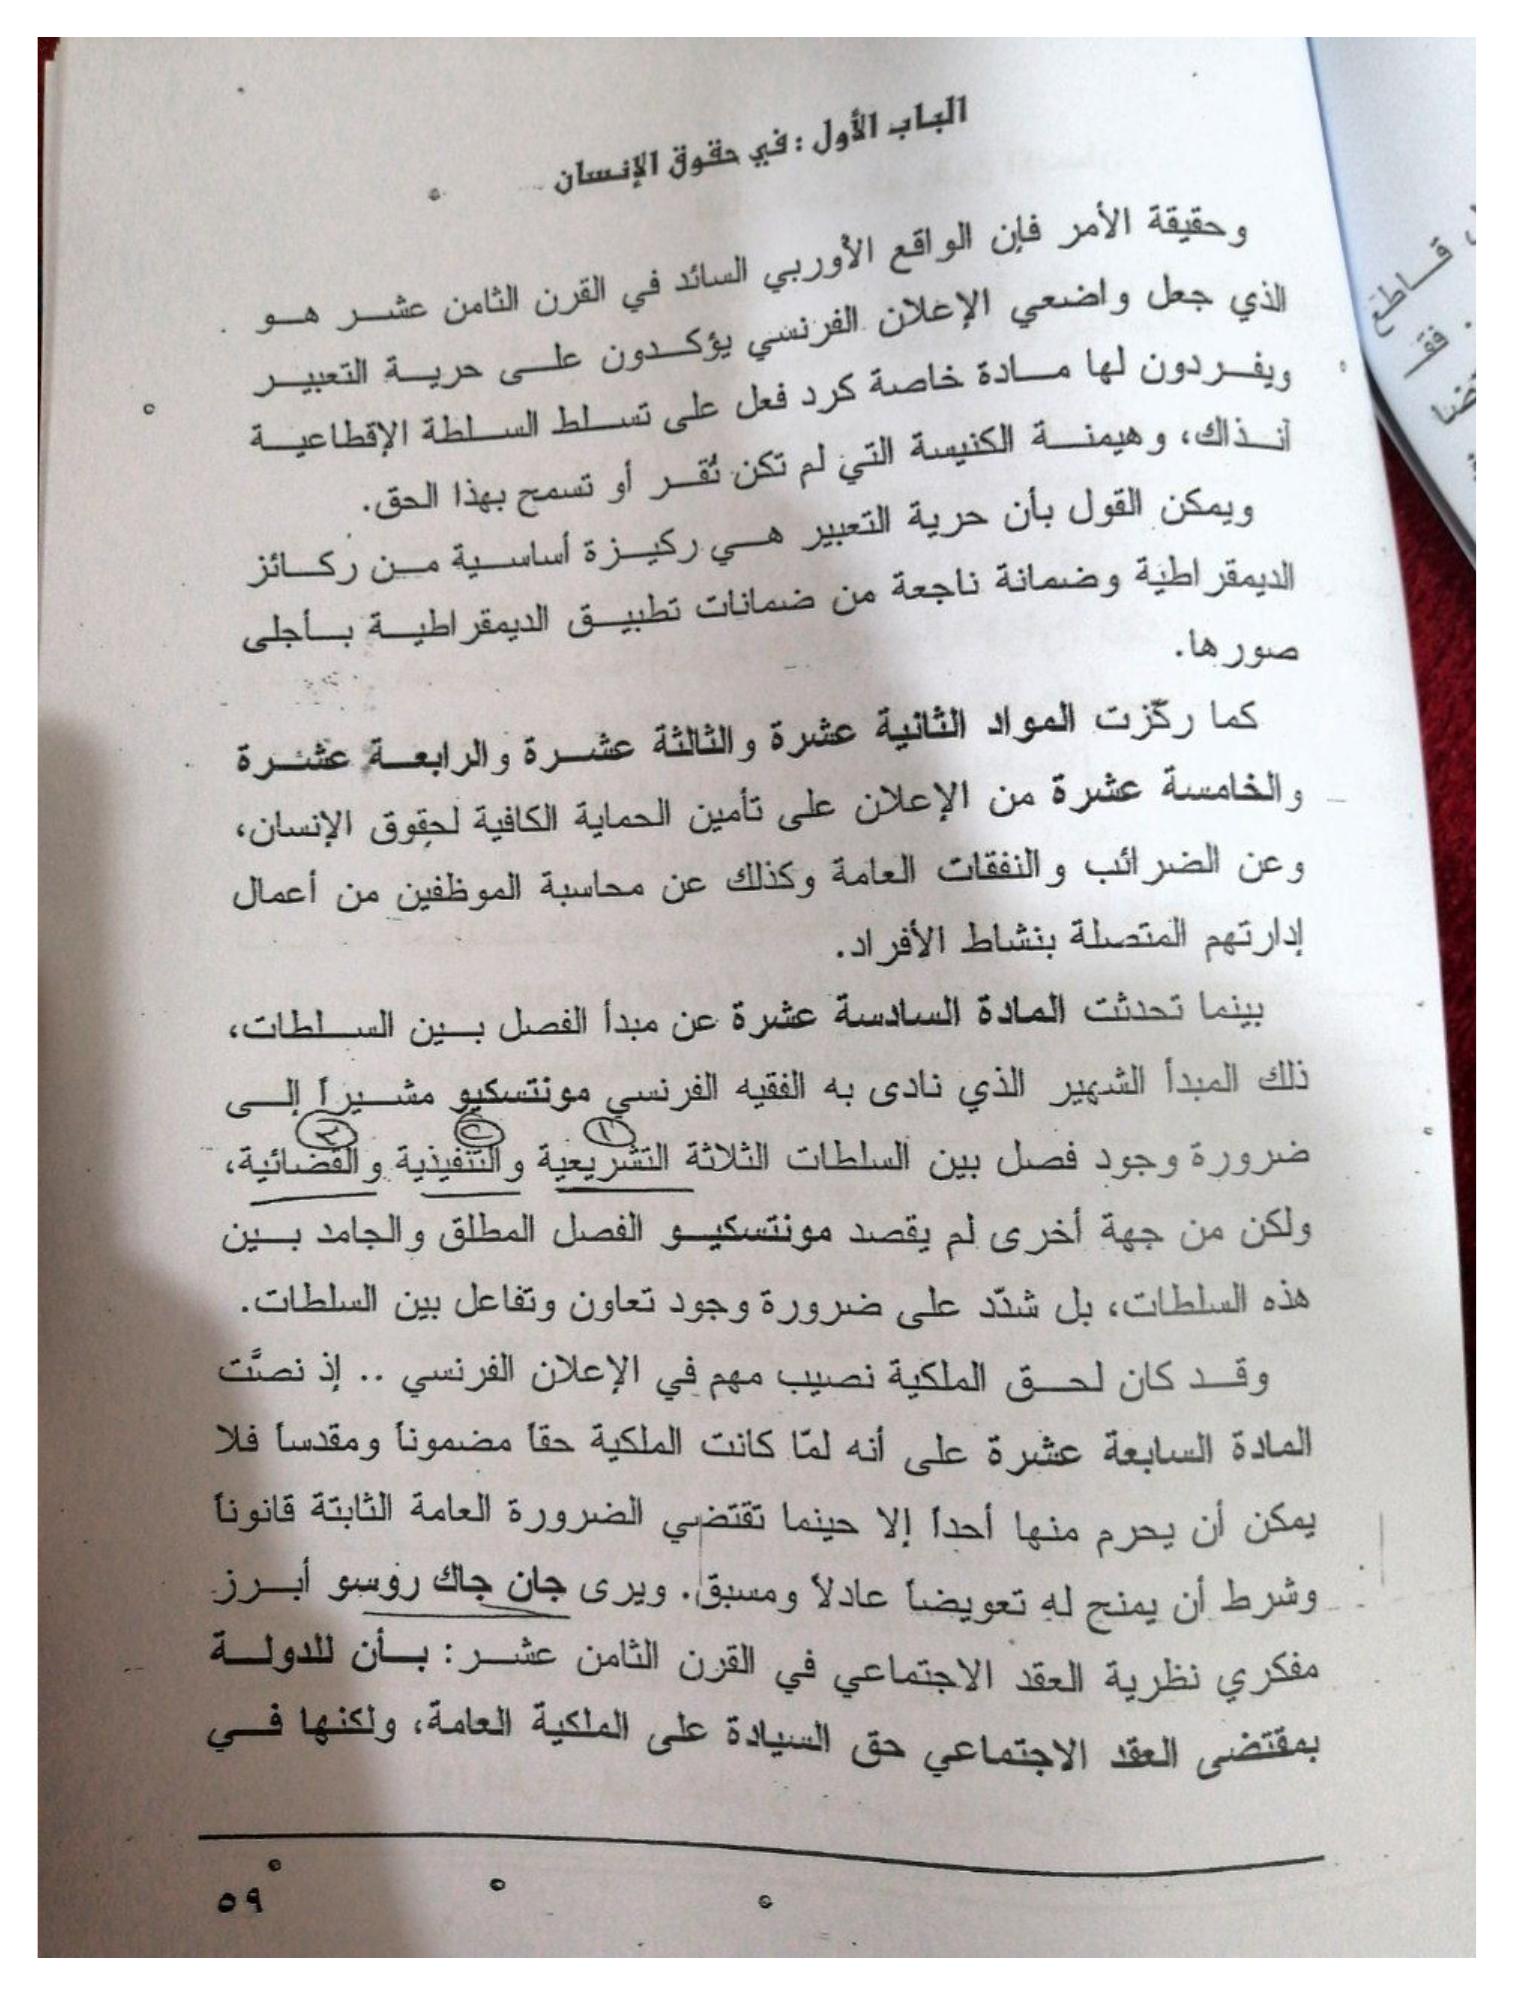 الباب الأول : في حقوق الإنسان
وحقيقة الأمر فإن الواقع الأوربي السائد في القرن الثامن عشر هو
الذي جعل واضعي الإعلان الفرنسي يؤكدون على حرية التعبير
ويفردون لها مادة خاصة كرد فعل على تسلط السلطة الإقطاعية
آنذاك، وهيمنة الكنيسة التي لم تكن تُقر أو تسمح بهذا الحق.
ويمكن القول بأن حرية التعبير هي ركيزة أساسية من ركائز
الديمقراطية وضمانة ناجعة من ضمانات تطبيق الديمقراطية بأجلى
صورها.
كما ركّزت المواد الثانية عشرة والثالثة عشرة والرابعة عشرة
والخامسة عشرة من الإعلان على تأمين الحماية الكافية لحقوق الإنسان،
وعن الضرائب والنفقات العامة وكذلك عن محاسبة الموظفين من أعمال
إدارتهم المتصلة بنشاط الأفراد.
بينما تحدثت المادة السادسة عشرة عن مبدأ الفصل بين السلطات،
ذلك المبدأ الشهير الذي نادى به الفقيه الفرنسي مونتسكيو مشيراً إلى
١ ٢ ٣
ضرورة وجود فصل بين السلطات الثلاثة التشريعية والتنفيذية والقضائية،
ولكن من جهة أخرى لم يقصد مونتسكيو الفصل المطلق والجامد بين
هذه السلطات، بل شدّد على ضرورة وجود تعاون وتفاعل بين السلطات.
وقد كان لحق الملكية نصيب مهم في الإعلان الفرنسي .. إذ نصَّت
المادة السابعة عشرة على أنه لمّا كانت الملكية حقاً مضموناً ومقدساً فلا
يمكن أن يحرم منها أحداً إلا حينما تقتضي الضرورة العامة الثابتة قانوناً
وشرط أن يمنح له تعويضاً عادلاً ومسبق. ويرى جان جاك روسو أبرز
مفكري نظرية العقد الاجتماعي في القرن الثامن عشر : بأن للدولة
بمقتضى العقد الاجتماعي حق السيادة على الملكية العامة، ولكنها في
٥٩
قاطع
فقر